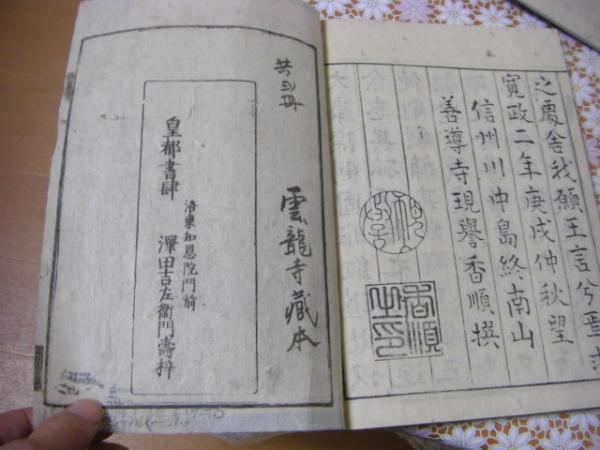 之慶舎我願王言兮
寛政二年庚戌仲秋望
信州川中島終南山
善導寺現譽香順撰
香順之印
雲龍寺藏本
共三冊
洛東知恩院門前
皇都書肆 澤田吉左衞門壽梓